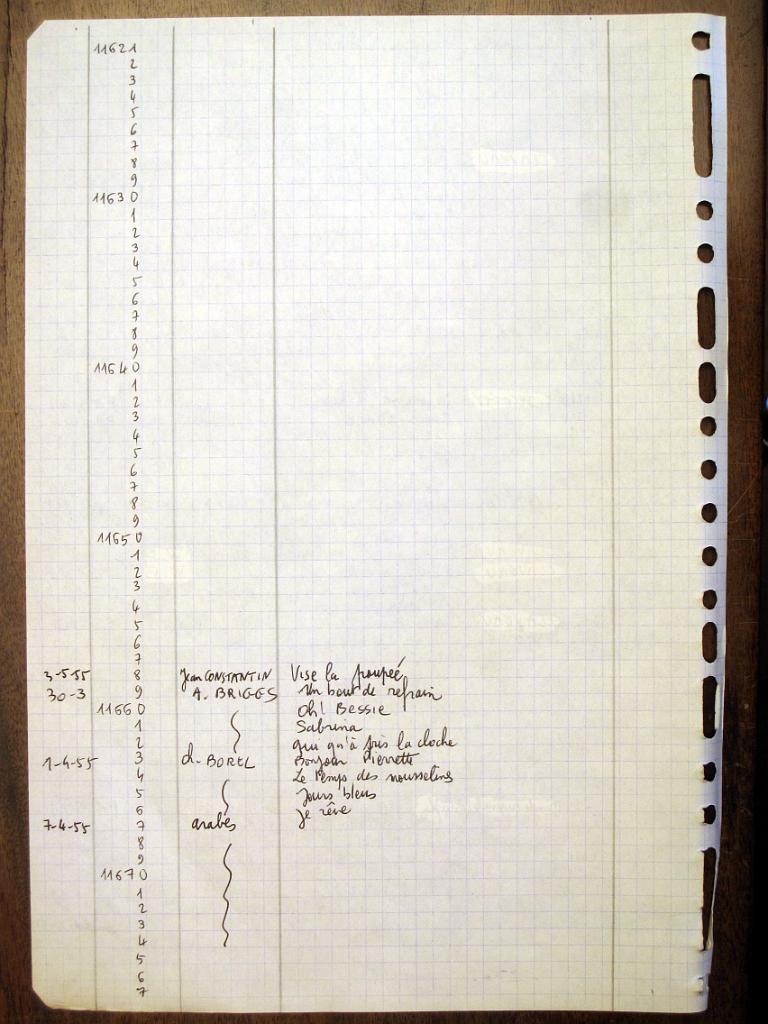 11621
2
3
4
5
6
7
8
9
11630
1
2
3
4
5
6
7
8
9
11640
1
2
3
4
5
6
7
8
9
11650
1
2
3
4
5
6
7
3-5-55 8 Jean CONSTANTIN Vise la poupée
30-3 9 A. BRIGGS Un bout de refrain
11660 Oh! Bessie
1 Sabrina
2 qui qu'a pris la cloche
1-4-55 3 ch. BOREL Bonjour Pierrette
4 Le temps des mousselines
5 Jours bleus
6 Je rêve
7-4-55 7 arabes
8
9
11670
1
2
3
4
5
6
7